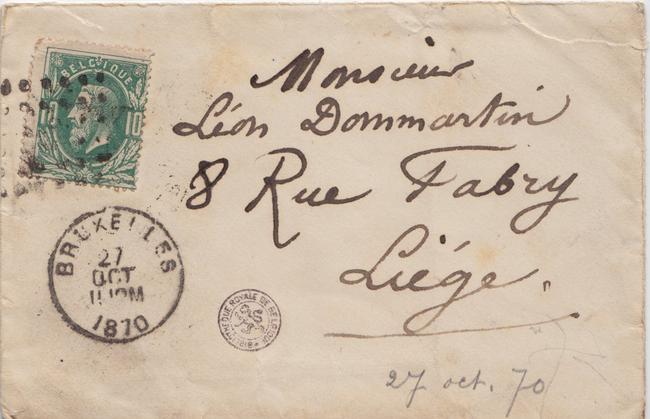 BELGIQUE
10 10
Monsieur
Léon Dommartin
8 Rue Fabry
Liége.
BRUXELLES
27
OCT
1870
BIBLIOTHEQUE ROYALE DE BELGIQUE
27 oct. 70